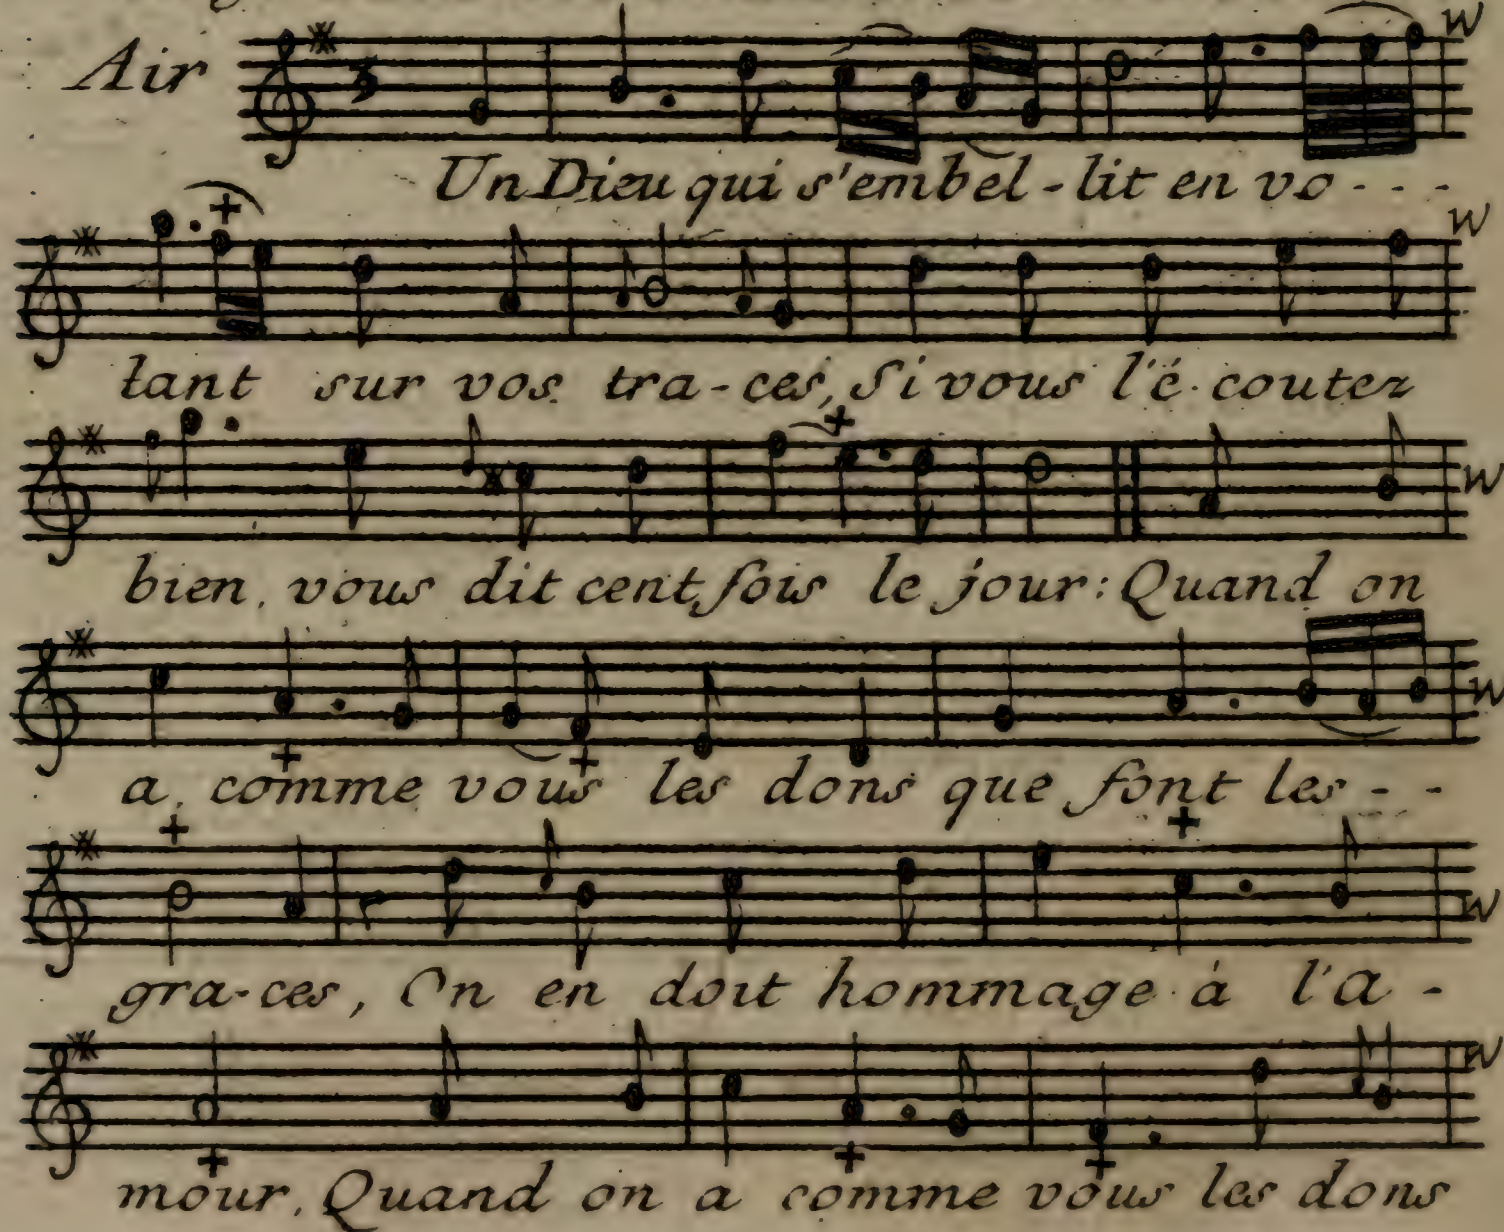 Air
3
Un Dieu qui s'embel-lit en vo - - -
tant sur vos tra-ces, Si vous l'é-coutez
bien, vous dit cent fois le jour: Quand on
a, comme vous les dons que font les - -
gra-ces, On en doit hommage à l'a -
mour, Quand on a comme vous les dons